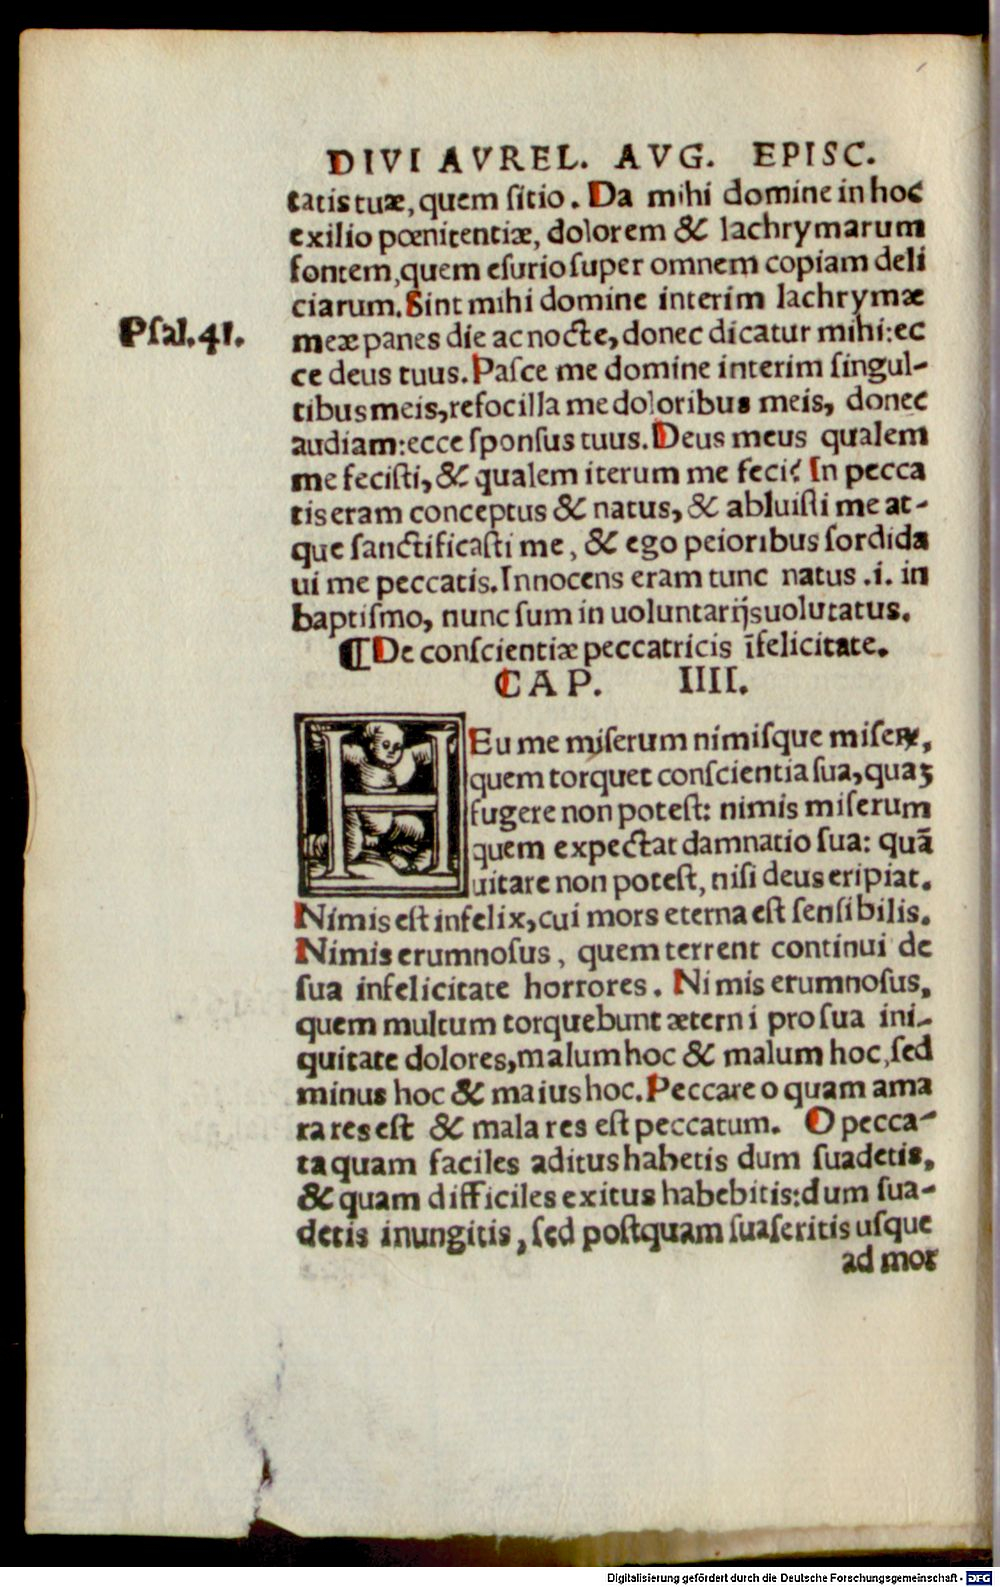 DIVI AVREL. AVG. EPISC.
tatis tuæ, quem sitio. Da mihi domine in hoc
exilio pœnitentiæ, dolorem & lachrymarum
fontem, quem esurio super omnem copiam deli
ciarum. Sint mihi domine interim lachrymæ
Psal. 41.
meæ panes die ac nocte, donec dicatur mihi: ec
ce deus tuus. Pasce me domine interim singul-
tibus meis, refocilla me doloribus meis, donec
audiam: ecce sponsus tuus. Deus meus qualem
me fecisti, & qualem iterum me feci? In pecca
tis eram conceptus & natus, & abluisti me at-
que sanctificasti me, & ego peioribus sordida
ui me peccatis. Innocens eram tunc natus .i. in
baptismo, nunc sum in uoluntarijs uolutatus.
¶ De conscientiæ peccatricis ĩfelicitate.
CAP. IIII.
HEu me miserum nimisque
quem torquet conscientia sua, quaꝫ
fugere non potest: nimis miserum
quem expectat damnatio sua: quã
uitare non potest, nisi deus eripiat.
Nimis est infelix, cui mors eterna est sensibilis.
Nimis erumnosus, quem terrent continui de
sua infelicitate horrores. Nimis erumnosus,
quem multum torquebunt æterni pro sua ini-
quitate dolores, malum hoc & malum hoc, sed
minus hoc & maius hoc. Peccare o quam ama
ra res est & mala res est peccatum. O pecca-
ta quam faciles aditus habetis dum suadetis,
& quam difficiles exitus habebitis: dum sua-
detis inungitis, sed postquam suaseritis usque
ad mor
Digitalisierung gefördert durch die Deutsche Forschungsgemeinschaft - DFG